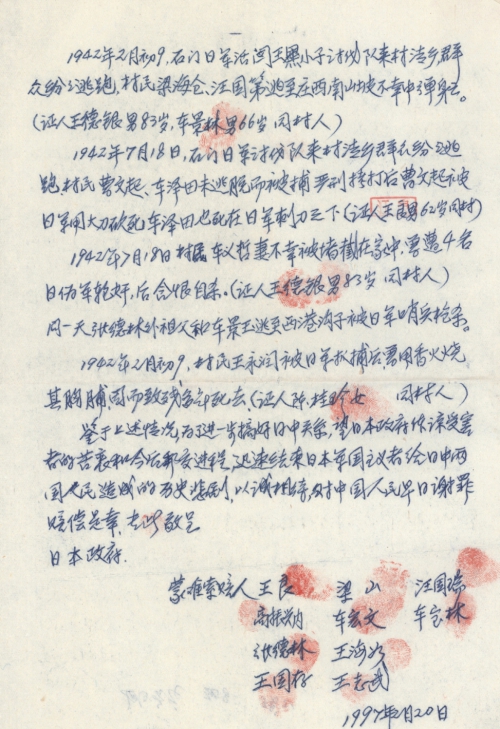 1942年2月初9，石门日军活阎王黑小子讨伐队来村洼乡群
众纷纷逃跑，村民梁海仓、汪国第逃至庄西南山坡不幸中弹身亡。
(证人王德银男83岁，车景林男66岁 同村人)
1942年7月18日，石门日军讨伐队来村洼乡群众纷纷逃
跑，村民曹文起、车泽田未逃脱而被捕严刑拷打后曹文起被
日军用大刀砍死车泽田也死在日军刺刀之下(证人王良男62岁同村)
1942年7月18日村民车义哲妻不幸被堵截在家中，曾遭4名
日伪军轮奸，后含恨自杀。(证人王德银男83岁 同村人)
同一天张德林外祖父和车景玉逃至西港沟子被日军哨兵枪杀。
1942年2月初9，村民王永润被日军抓捕后曾用香火烧
其胸脯因而致残多年死去(证人陈桂珍女 同村人)
鉴于上述情况，为进一步搞好日中关系，望日本政府体谅受害
者的苦衷和今后邦交进程，迅速结束日本军国主义者给日中两
国人民造成的历史悲剧，以诚相待，对中国人民早日谢罪
赔偿是幸，专此敬呈
日本政府.
蒙难索赔人 王良 梁山 汪国瑞
高振 车宏文 车宝林
张德林 王海
王国存 王志武
1997年 月20日